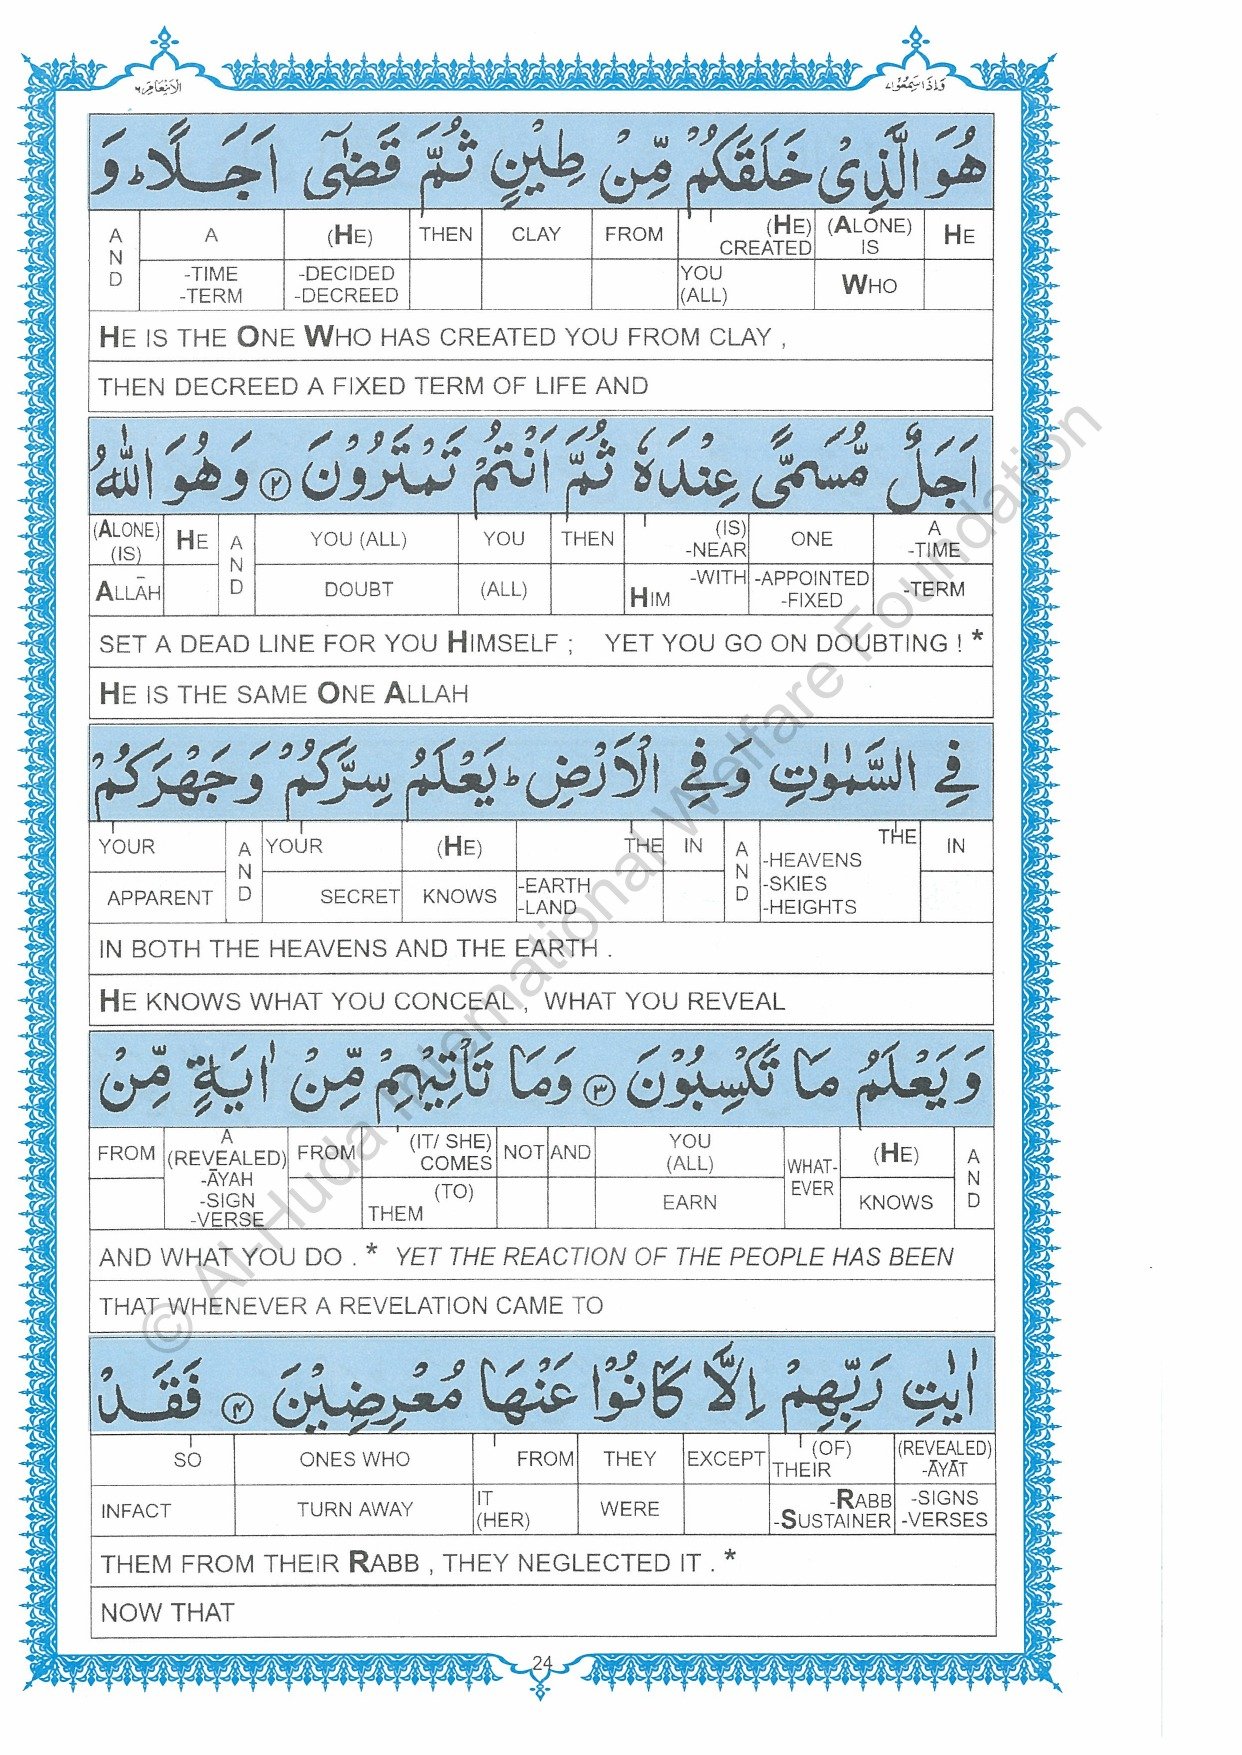 الانعام ٦
واذا سمعوا ٧
هُوَ الَّذِىْ خَلَقَكُمْ مِّنْ طِيْنٍ ثُمَّ قَضٰٓى اَجَلًا ؕ وَ
A N D | A | (HE) | THEN | CLAY | FROM | (HE) CREATED | (ALONE) IS | HE
-TIME -TERM | -DECIDED -DECREED | YOU (ALL) | WHO
HE IS THE ONE WHO HAS CREATED YOU FROM CLAY ,
THEN DECREED A FIXED TERM OF LIFE AND
اَجَلٌ مُّسَمًّى عِنْدَهٗ ثُمَّ اَنْتُمْ تَمْتَرُوْنَ ۝٢ وَهُوَ اللّٰهُ
(ALONE) (IS) | HE | A N D | YOU (ALL) | YOU | THEN | (IS) -NEAR | ONE | A -TIME
ALLĀH | DOUBT | (ALL) | -WITH HIM | -APPOINTED -FIXED | -TERM
SET A DEAD LINE FOR YOU HIMSELF ; YET YOU GO ON DOUBTING ! *
HE IS THE SAME ONE ALLAH
فِى السَّمٰوٰتِ وَفِى الْاَرْضِ ؕ يَعْلَمُ سِرَّكُمْ وَجَهْرَكُمْ
YOUR | A N D | YOUR | (HE) | THE | IN | A N D | THE -HEAVENS -SKIES -HEIGHTS | IN
APPARENT | SECRET | KNOWS | -EARTH -LAND
IN BOTH THE HEAVENS AND THE EARTH .
HE KNOWS WHAT YOU CONCEAL , WHAT YOU REVEAL
وَيَعْلَمُ مَا تَكْسِبُوْنَ ۝٣ وَمَا تَاْتِيْهِمْ مِّنْ اٰيَةٍ مِّنْ
FROM | A (REVEALED) -ĀYAH -SIGN -VERSE | FROM | (IT/ SHE) COMES | NOT | AND | YOU (ALL) | WHAT-EVER | (HE) | A N D
(TO) THEM | EARN | KNOWS
AND WHAT YOU DO . * YET THE REACTION OF THE PEOPLE HAS BEEN
THAT WHENEVER A REVELATION CAME TO
اٰيٰتِ رَبِّهِمْ اِلَّا كَانُوْا عَنْهَا مُعْرِضِيْنَ ۝٤ فَقَدْ
SO | ONES WHO | FROM | THEY | EXCEPT | (OF) THEIR | (REVEALED) -ĀYĀT
INFACT | TURN AWAY | IT (HER) | WERE | -RABB -SUSTAINER | -SIGNS -VERSES
THEM FROM THEIR RABB , THEY NEGLECTED IT . *
NOW THAT
24
© Al-Huda International Welfare Foundation